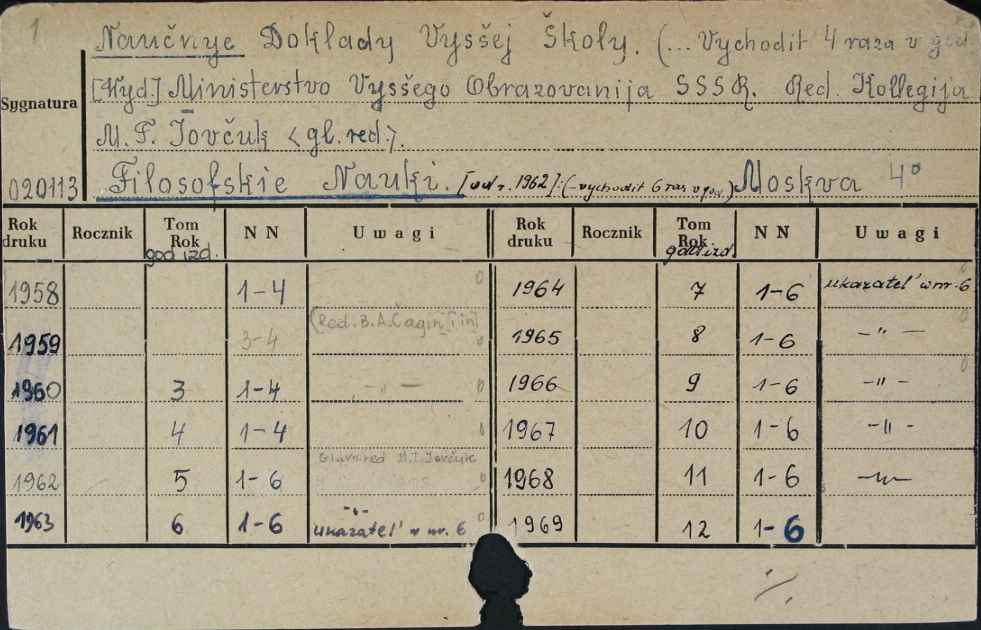 1
Naučnye Doklady Vysšej Školy. (... Vychodit 4 raza v god.
[Wyd.] Ministerstvo Vysšego Obrazovanija SSSR. Red. Kollegija
Sygnatura
M. F. Iovčuk <gl. red.>.
020113 Filosofskie Nauki. [od r. 1962]: (-vychodit 6 raz v god.) Moskva 4°
Rok druku Rocznik Tom Rok god izd. NN Uwagi Rok druku Rocznik Tom Rok god izd. NN Uwagi
1958 1-4 1964 7 1-6 ukazatel' w nr. 6
(Red. B. A. Čagin [i in]
1959 3-4 1965 8 1-6 -"-
1960 3 1-4 -"- 1966 9 1-6 -"-
1961 4 1-4 1967 10 1-6 -"-
Glavn. red M. T. Jovčuk
1962 5 1-6 1968 11 1-6 -"-
-"-
1963 6 1-6 ukazatel' w nr. 6 1969 12 1-6
·/.